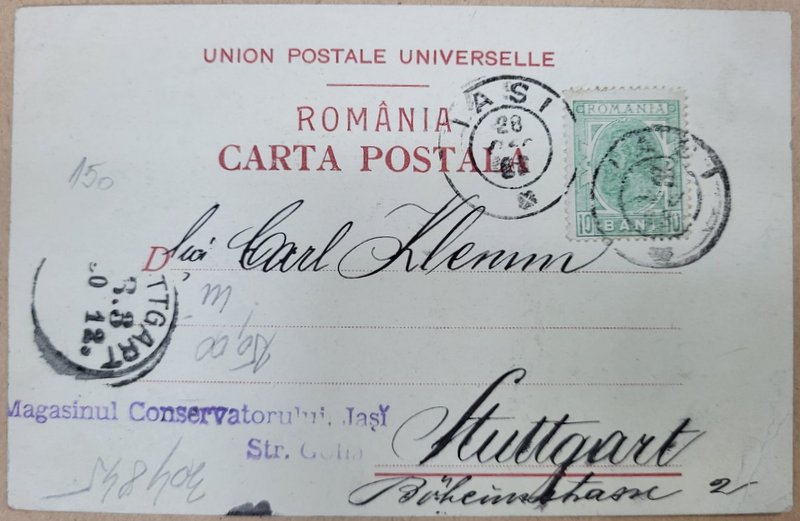 UNION POSTALE UNIVERSELLE
ROMÂNIA
CARTA POSTALĂ
IASI
28
ROMANIA
10 BANI 10
150
Carl Klemm
TTGART
12
150,00
Magasinul Conservatorului, Jași
Str. Golia
Stuttgart
Böheimstrasse 2